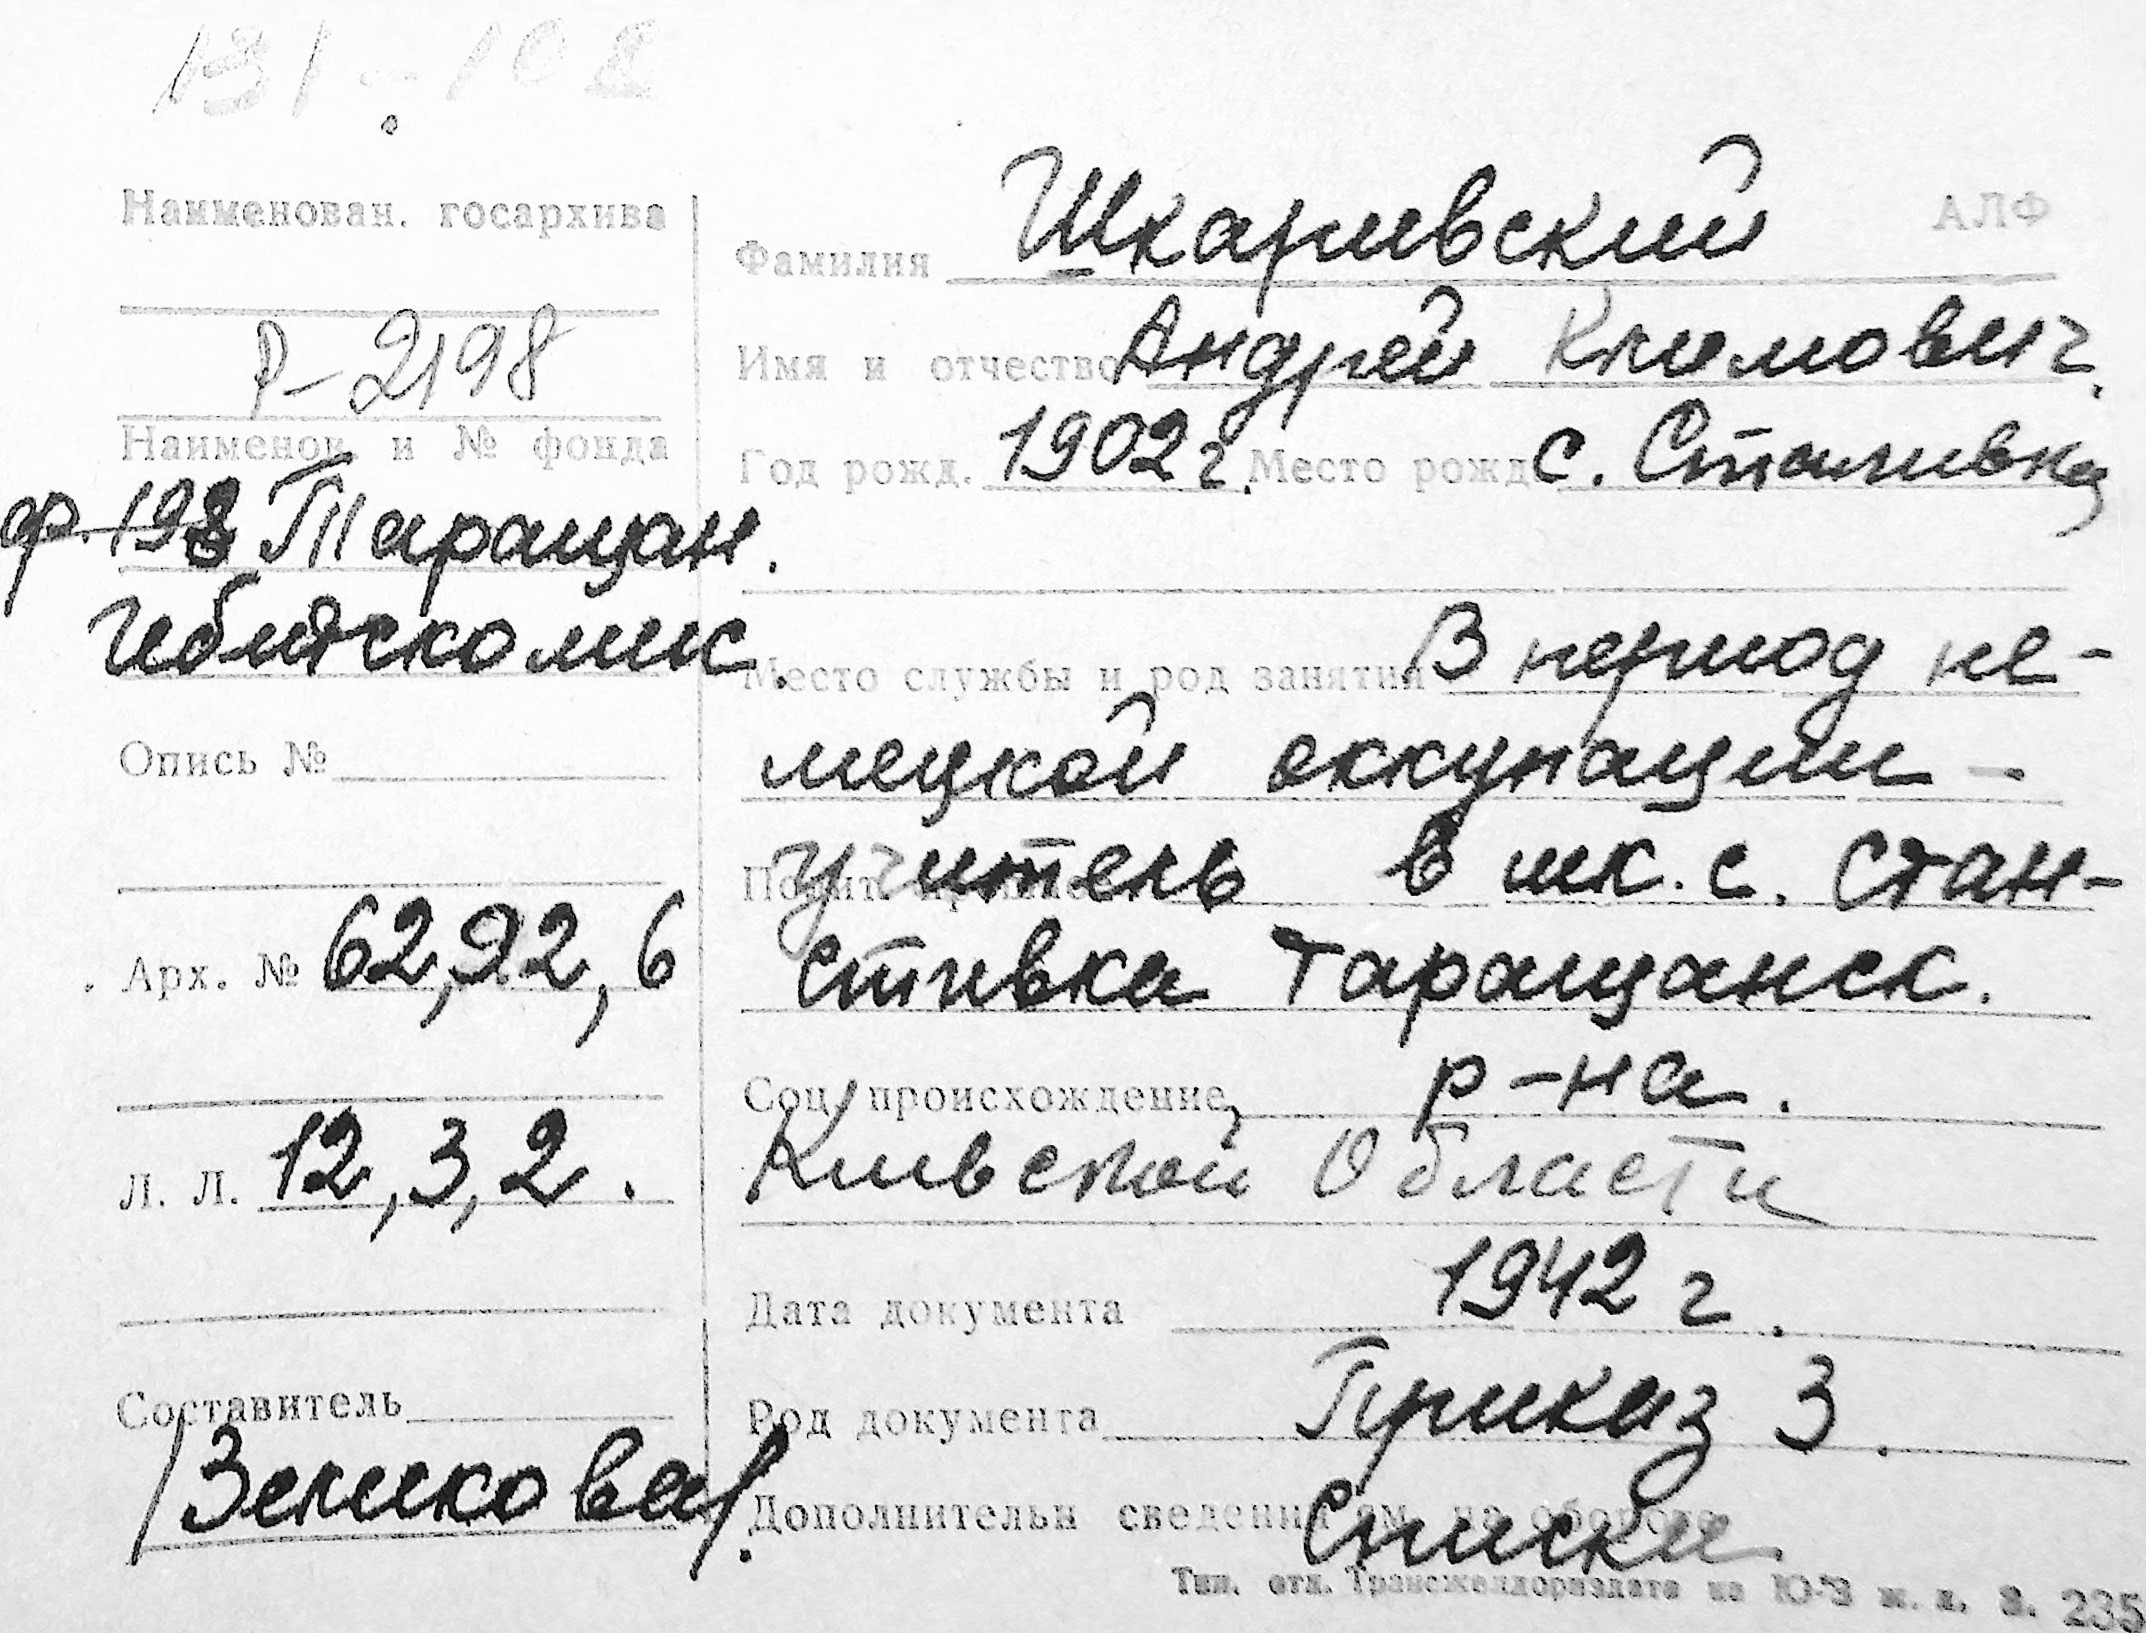 131-102
Наименован. госархива
Р-2198
Наименов. и № фонда
ф. 198 Таращан.
Гебитскомис.
Опись №
Арх. № 62,92,6
Л. Л. 12,3,2.
Составитель
/Зеликова/.
АЛФ
Фамилия Шкаривский
Имя и отчество Андрей Климович.
Год рожд. 1902 г. Место рожд с.
Место службы и род занятий В период не-
мецкой оккупации –
учитель в шк. с. Стан-
Таращанск.
Соц. происхождение, р-на.
Киевской Области
Дата документа 1942 г.
Род документа Приказ 3.
Дополнительн сведения на обороте
Списки
Тип. отд. Трансжелдориздата на Ю-З ж. д. З. 235